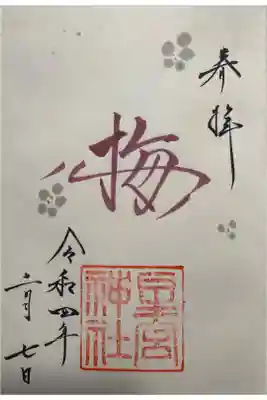 奉拝
梅
皇宮
神社
令和四年
二月七日